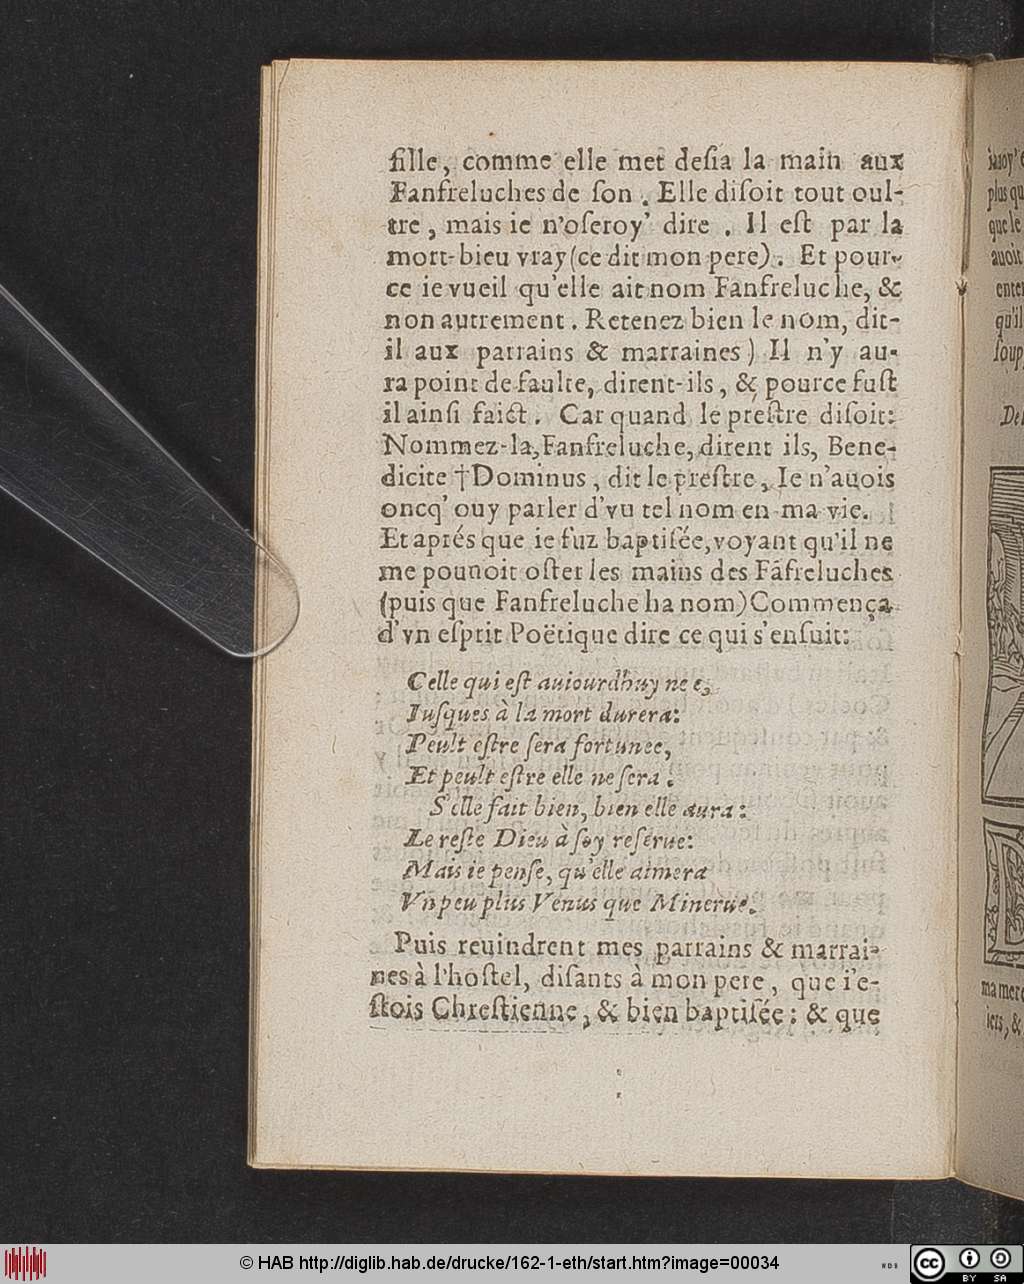 fille, comme elle met deſia la main aux
Fanfreluches de ſon. Elle diſoit tout oul-
tre, mais ie n'oſeroy' dire. Il eſt par la
mort-bieu vray (ce dit mon pere). Et pour-
ce ie vueil qu'elle ait nom Fanfreluche, &
non autrement. Retenez bien le nom, dit-
il aux parrains & marraines) Il n'y au-
ra point de faulte, dirent-ils, & pource fuſt
il ainſi faict. Car quand le preſtre diſoit:
Nommez-la, Fanfreluche, dirent ils, Bene-
dicite † Dominus, dit le preſtre, Ie n'auois
oncq' ouy parler d'vu tel nom en ma vie.
Et aprés que ie fuz baptiſée, voyant qu'il ne
me pouuoit oſter les mains des Fãfreluches
(puis que Fanfreluche ha nom) Commença
d'vn eſprit Poëtique dire ce qui s'enſuit:
Celle qui eſt auiourdhuy nee,
Iuſques à la mort durera:
Peult eſtre ſera fortunee,
Et peult eſtre elle ne ſera:
S'elle fait bien, bien elle aura:
Le reſte Dieu à ſoy reſerue:
Mais ie penſe, qu'elle aimera
Vn peu plus Venus que Minerue.
Puis reuindrent mes parrains & marrai-
nes à l'hoſtel, diſants à mon pere, que i'e-
ſtois Chreſtienne, & bien baptiſée: & que
plus qu
que le
auoit
enter
qu'il
ſoup
De
ma mere
iers, &
© HAB http://diglib.hab.de/drucke/162-1-eth/start.htm?image=00034
WDB
cc BY SA